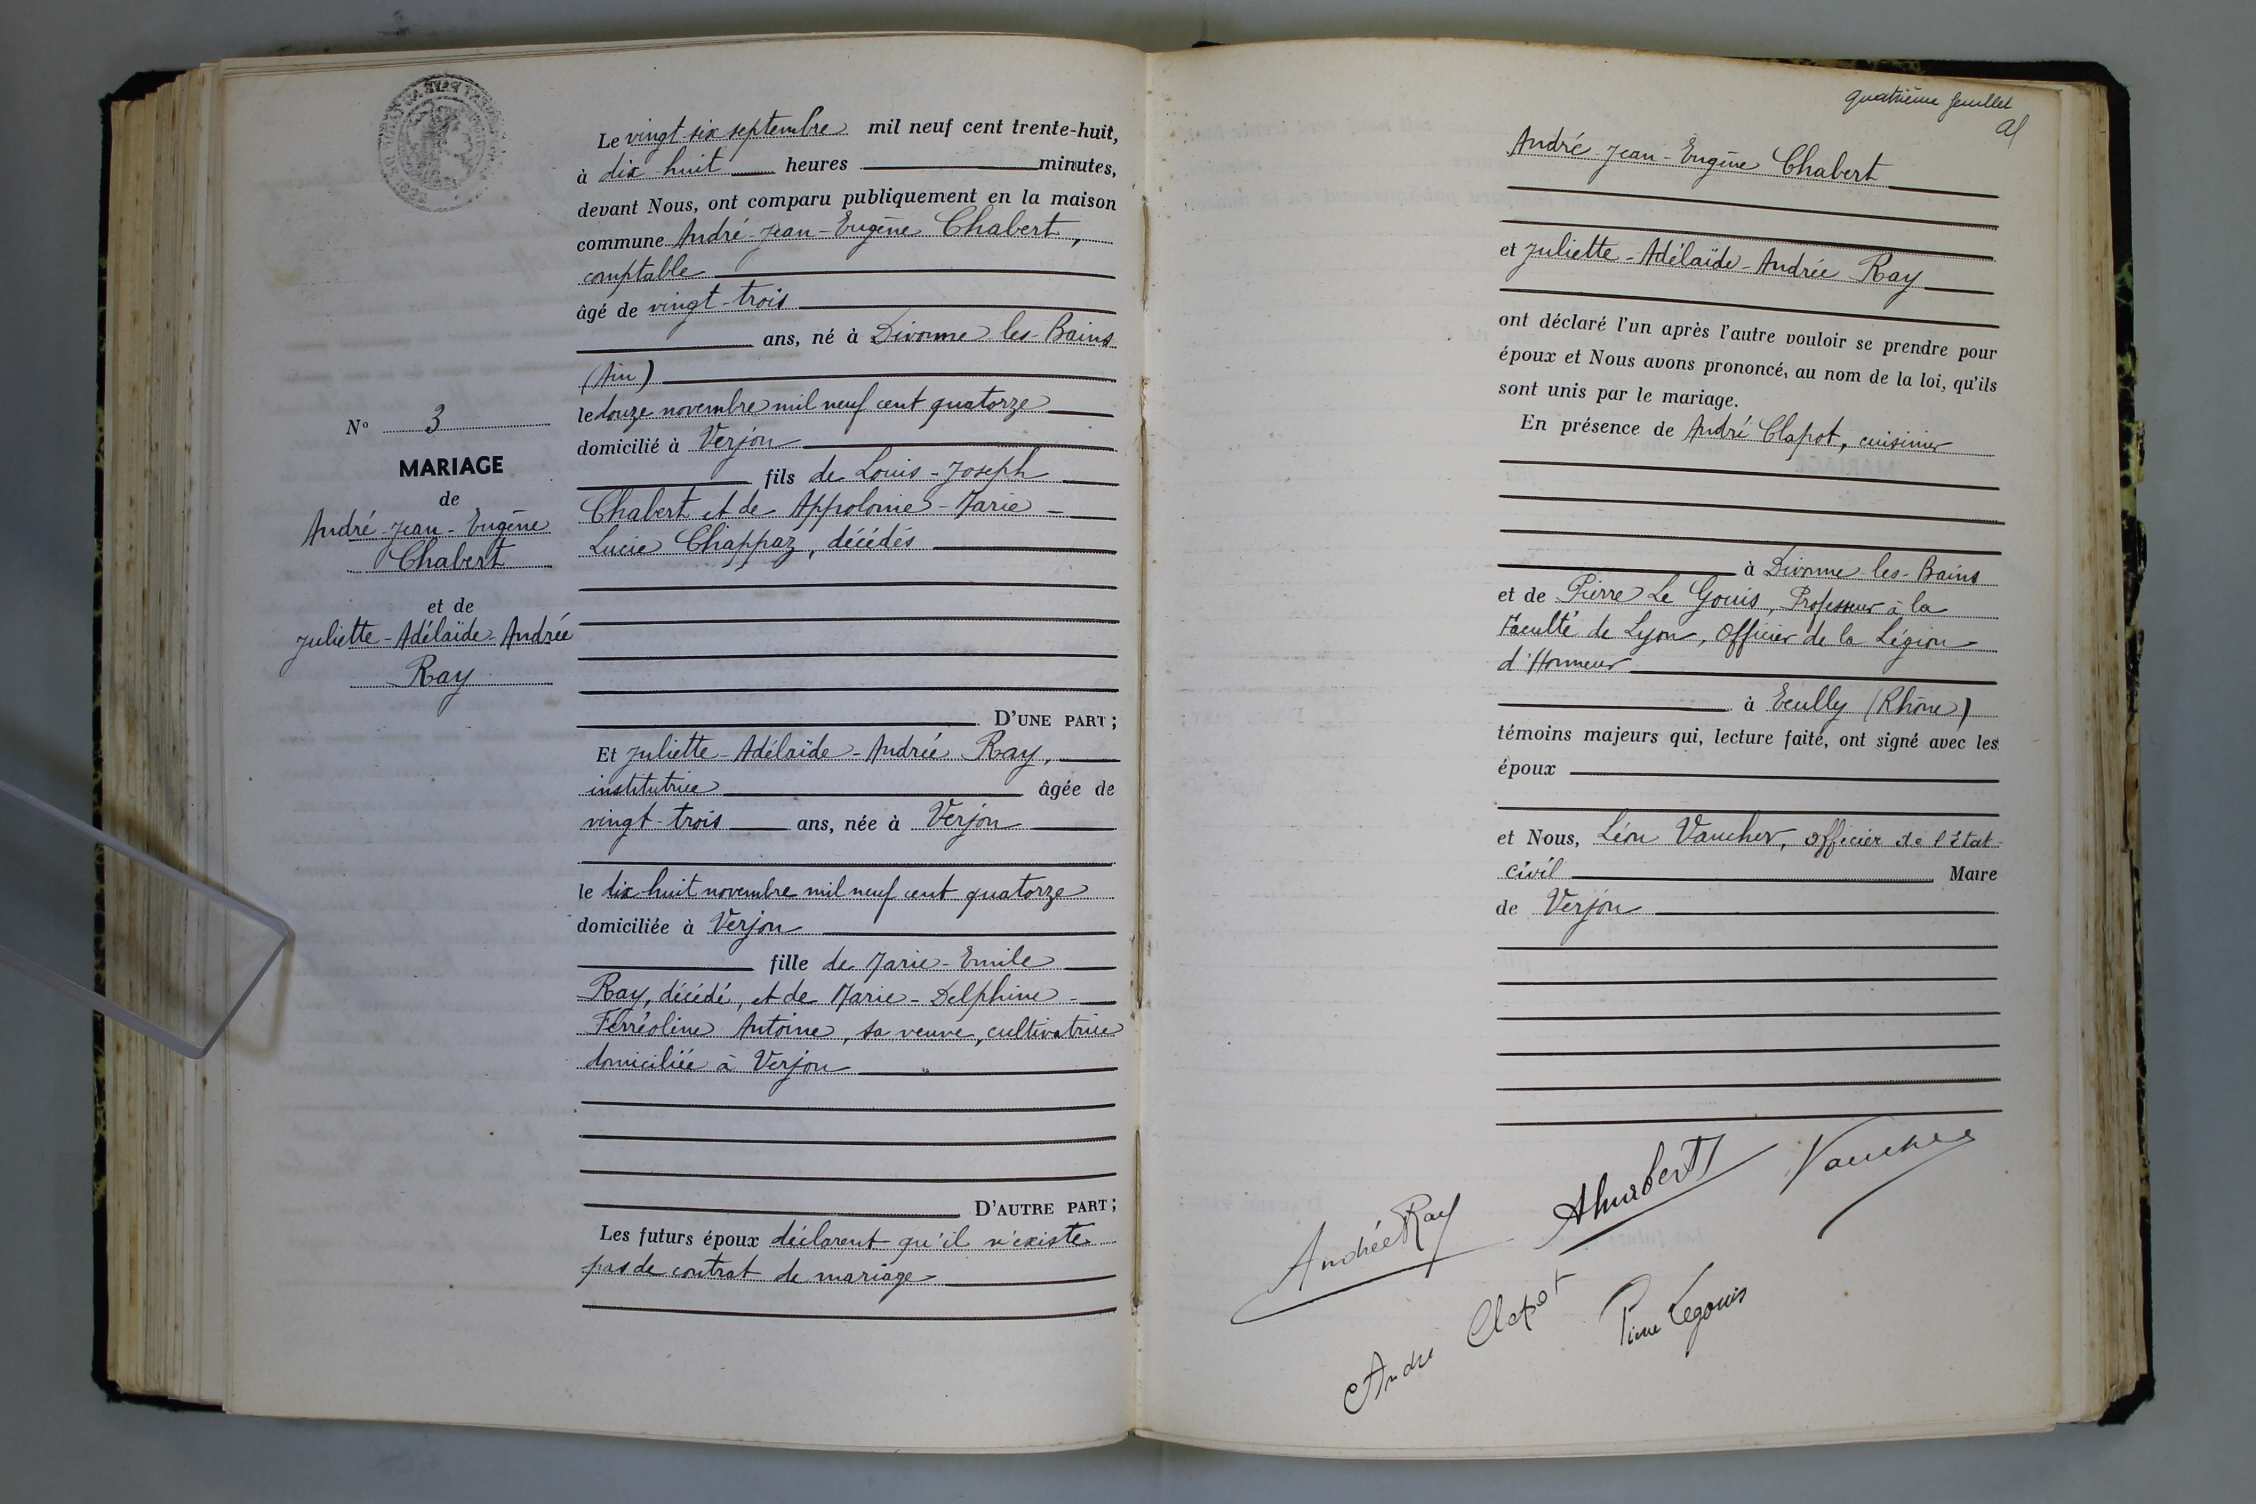 Le vingt-six septembre mil neuf cent trente-huit,
à dix-huit heures minutes,
devant Nous, ont comparu publiquement en la maison
commune André-Jean-Eugène Chabert,
comptable
âgé de vingt-trois
ans, né à Divonne-les-Bains
(Ain)
le douze novembre mil neuf cent quatorze
domicilié à Verjon
fils de Louis-Joseph
Chabert et de Appolonie-Marie-
Lucie Chappaz, décédés
D'UNE PART;
Et Juliette-Adélaïde-Andrée Ray,
institutrice âgée de
vingt-trois ans, née à Verjon
le dix-huit novembre mil neuf cent quatorze
domiciliée à Verjon
fille de Marie-Emile
Ray, décédé, et de Marie-Delphine-
Ferréoline Antoine, sa veuve, cultivatrice
domiciliée à Verjon
D'AUTRE PART;
Les futurs époux déclarent qu'il n'existe
pas de contrat de mariage
N° 3
MARIAGE
de
André-Jean-Eugène
Chabert
et de
Juliette-Adélaïde-Andrée
Ray
quatrième feuillet
André-Jean-Eugène Chabert
et Juliette-Adélaïde-Andrée Ray
ont déclaré l'un après l'autre vouloir se prendre pour
époux et Nous avons prononcé, au nom de la loi, qu'ils
sont unis par le mariage.
En présence de André Clapot, cuisinier
à Divonne-les-Bains
et de Pierre Le Gouis, Professeur à la
Faculté de Lyon, Officier de la Légion
d'Honneur
à Ecully (Rhône)
témoins majeurs qui, lecture faite, ont signé avec les
époux
et Nous, Léon Vaucher, officier de l'Etat-
civil Maire
de Verjon
Andrée Ray
Vaucher
André Clapot
Pierre Legouis